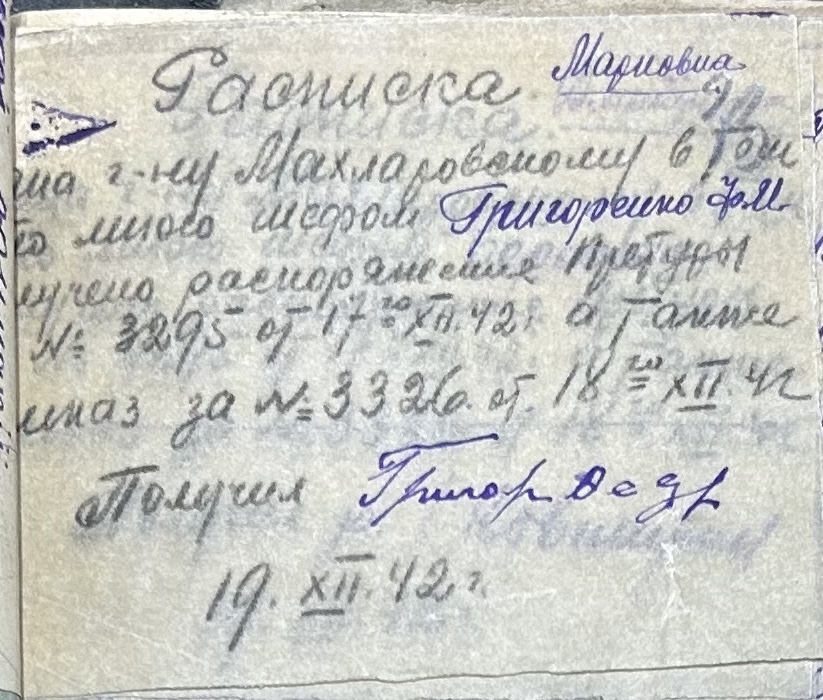 Расписка
Марковка
на г-ну Махларовскому в том
что мною шефом Григоренко Ф.М.
лучено распоряжение Претуры
№ 3295 от 17го XII.42г а также
иказ за № 3326 от. 18го XII.42
Получил Григор
19. XII.42 г.